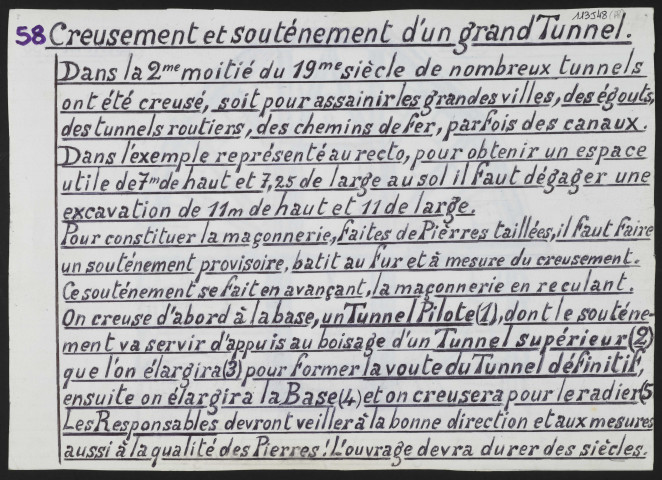 113548
58 Creusement et souténement d'un grand Tunnel.
Dans la 2me moitié du 19me siècle de nombreux tunnels
ont été creusé, soit pour assainir les grandes villes, des égouts,
des tunnels routiers, des chemins de fer, parfois des canaux.
Dans l'exemple représenté au recto, pour obtenir un espace
utile de 7m de haut et 7,25 de large au sol il faut dégager une
excavation de 11m de haut et 11 de large.
Pour constituer la maçonnerie, faites de Pièrres taillées, il faut faire
un souténement provisoire, batit au fur et à mesure du creusement.
Ce souténement se fait en avançant, la maçonnerie en reculant.
On creuse d'abord à la base, un Tunnel Pilote (1), dont le souténe-
ment va servir d'appuis au boisage d'un Tunnel supérieur (2)
que l'on élargira (3) pour former la voute du Tunnel définitif,
ensuite on élargira la Base (4) et on creusera pour le radier (5
Les Responsables devront veiller à la bonne direction et aux mesures
aussi à la qualité des Pierres! L'ouvrage devra durer des siècles.